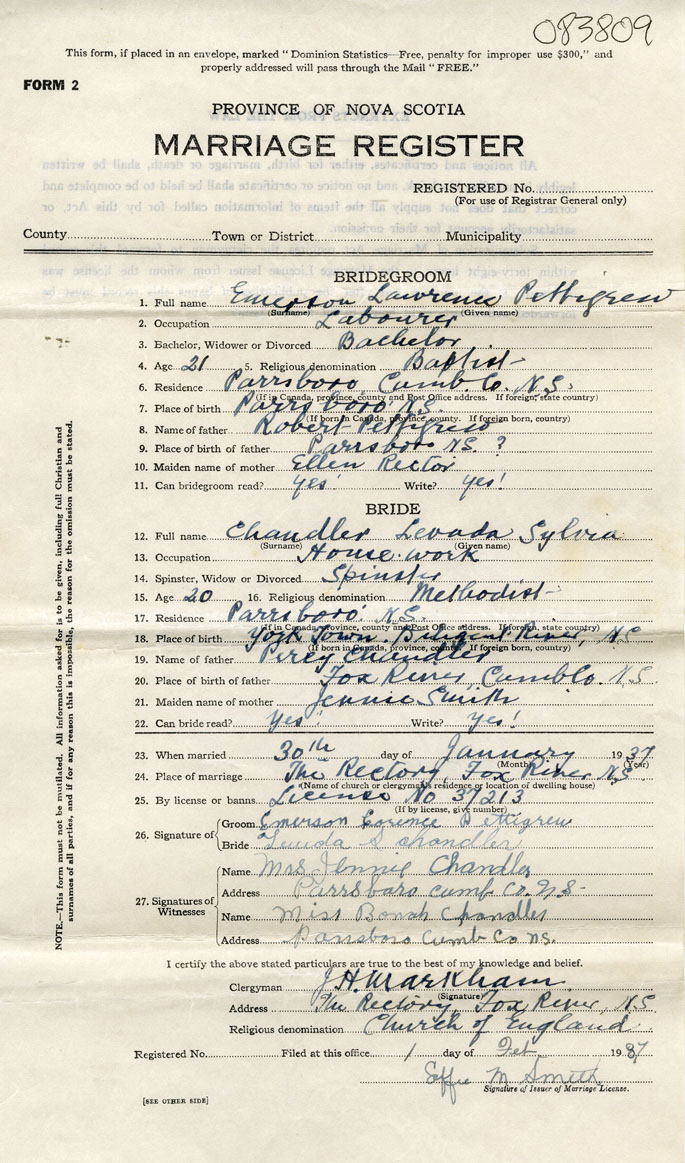 083809
This form, if placed in an envelope, marked "Dominion Statistics—Free, penalty for improper use $300," and
properly addressed will pass through the Mail "FREE."
FORM 2
PROVINCE OF NOVA SCOTIA
MARRIAGE REGISTER
REGISTERED No.
(For use of Registrar General only)
County Town or District Municipality
BRIDEGROOM
1. Full name Emerson Lawrence Pettigrew
(Surname) (Given name)
2. Occupation Labourer
3. Bachelor, Widower or Divorced Bachelor
4. Age 21 5. Religious denomination Baptist
6. Residence Parrsboro, Cumb. Co. N.S.
(If in Canada, province, county and Post Office address. If foreign, state country)
7. Place of birth Parrsboro N.S.
(If born in Canada, province, county. If foreign born, country)
8. Name of father Robert Pettigrew
9. Place of birth of father Parrsboro N.S. ?
10. Maiden name of mother Ellen Rector
11. Can bridegroom read? yes! Write? yes!
BRIDE
12. Full name Chandler Levada Sylvia
(Surname) (Given name)
13. Occupation House work
14. Spinster, Widow or Divorced Spinster
15. Age 20 16. Religious denomination Methodist
17. Residence Parrsboro N.S.
(If in Canada, province, county and Post Office address. If foreign, state country)
18. Place of birth York Town, Diligent River, N.S
(If born in Canada, province, county. If foreign born, country)
19. Name of father Percy Chandler
20. Place of birth of father Fox River, Cumb Co. N.S.
21. Maiden name of mother Jennie Smith
22. Can bride read? yes! Write? yes!
23. When married 30th day of January 1937
(Month) (Year)
24. Place of marriage The Rectory, Fox River N.S
(Name of church or clergyman's residence or location of dwelling house)
25. By license or banns License No 37213
(If by license, give number)
26. Signature of Groom Emerson Lorence Pettigrew
Bride S Chandler
27. Signatures of Witnesses
Name Mrs Jennie Chandler
Address Parrsboro Cumb Co. N.S-
Name Miss Bonah Chandler
Address Parrsboro Cumb Co NS.
I certify the above stated particulars are true to the best of my knowledge and belief.
Clergyman J.H. Markham
(Signature)
Address The Rectory, Fox River, N.S
Religious denomination Church of England
Registered No. Filed at this office 1 day of Feb. 1937
Effie M Smith
Signature of Issuer of Marriage License.
[SEE OTHER SIDE]
NOTE.—This form must not be mutilated. All information asked for is to be given, including full Christian and
surnames of all parties, and if for any reason this is impossible, the reason for the omission must be stated.